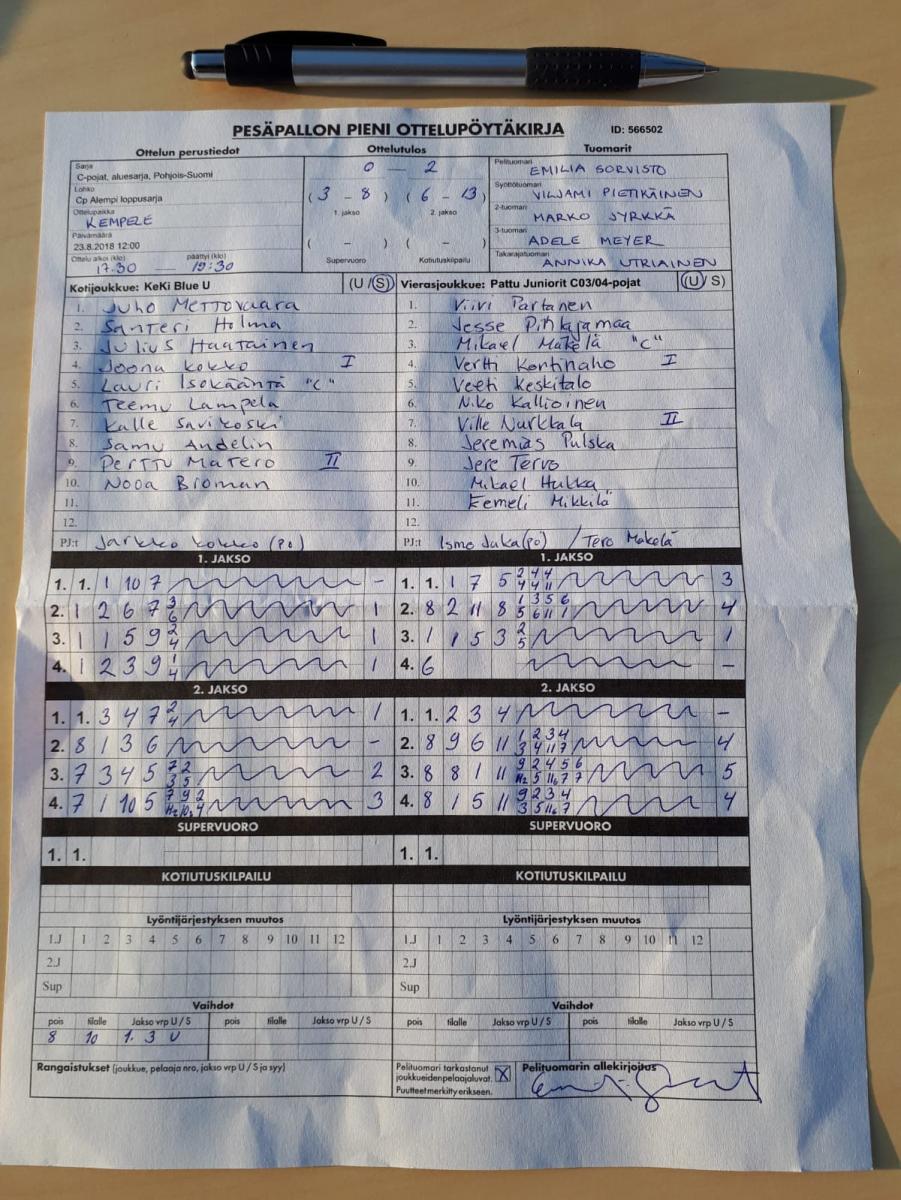 PESÄPALLON PIENI OTTELUPÖYTÄKIRJA ID: 566502
Ottelun perustiedot Ottelutulos Tuomarit
Sarja
C-pojat, aluesarja, Pohjois-Suomi
Lohko
Cp Alempi loppusarja
Ottelupaikka
KEMPELE
Päivämäärä
23.8.2018 12:00
Ottelu alkoi (klo) päättyi (klo)
17.30 — 19:30
0 — 2
( 3 - 8 ) ( 6 - 13 )
1. jakso 2. jakso
( - ) ( - )
Supervuoro Kotiutuskilpailu
Pelituomari EMILIA SORVISTO
Syöttötuomari VILJAMI PIETIKÄINEN
2-tuomari MARKO JYRKKÄ
3-tuomari ADELE MEYER
Takarajatuomari ANNIKA UTRIAINEN
Kotijoukkue: KeKi Blue U (U / S)
1. Juho Mettovaara
2. Santeri Holma
3. Julius Haatainen
4. Joona Kokko I
5. Lauri Isokääntä "C"
6. Teemu Lampela
7. Kalle Savikoski
8. Samu Andelin
9. Perttu Matero II
10. Nooa Broman
11.
12.
PJ:t Jarkko Kokko (PO)
Vierasjoukkue: Pattu Juniorit C03/04-pojat (U / S)
1. Viivi Partanen
2. Jesse Pihlajamaa
3. Mikael Mäkelä "C"
4. Vertti Kontinaho I
5. Veeti Keskitalo
6. Niko Kallioinen
7. Ville Nurkkala II
8. Jeremias Pulska
9. Jere Tervo
10. Mikael Hukka
11. Eemeli Mikkilä
12.
PJ:t Ismo Juka (PO) / Tero Mäkelä
1. JAKSO 1. JAKSO
1. 1. 1 10 7 -
2. 1 2 6 7 3 6 1
3. 1 1 5 9 2 4 1
4. 1 2 3 9 1 4 1
1. 1. 1 7 5 2 4 4 4 4 11 3
2. 8 2 11 8 1 3 5 6 5 6 11 1 4
3. 1 1 5 3 2 5 1
4. 6 -
2. JAKSO 2. JAKSO
1. 1. 3 4 7 2 4 1
2. 8 1 3 6 -
3. 7 3 4 5 7 2 3 5 2
4. 7 1 10 5 7 9 2 3
1. 1. 2 3 4 -
2. 8 9 6 11 1 2 3 4 3 4 11 7 4
3. 8 8 1 11 9 2 4 5 6 5
4. 8 1 5 11 9 2 3 4 4
SUPERVUORO SUPERVUORO
1. 1. 1. 1.
KOTIUTUSKILPAILU KOTIUTUSKILPAILU
Lyöntijärjestyksen muutos Lyöntijärjestyksen muutos
1.J 1 2 3 4 5 6 7 8 9 10 11 12 1.J 1 2 3 4 5 6 7 8 9 10 11 12
2.J 2.J
Sup Sup
Vaihdot Vaihdot
pois tilalle Jakso vrp U / S pois tilalle Jakso vrp U / S pois tilalle Jakso vrp U / S pois tilalle Jakso vrp U / S
8 10 1. 3 U
Rangaistukset (joukkue, pelaaja nro, jakso vrp U / S ja syy)
Pelituomari tarkastanut
joukkueiden pelaajaluvat. X
Puutteet merkitty erikseen.
Pelituomarin allekirjoitus